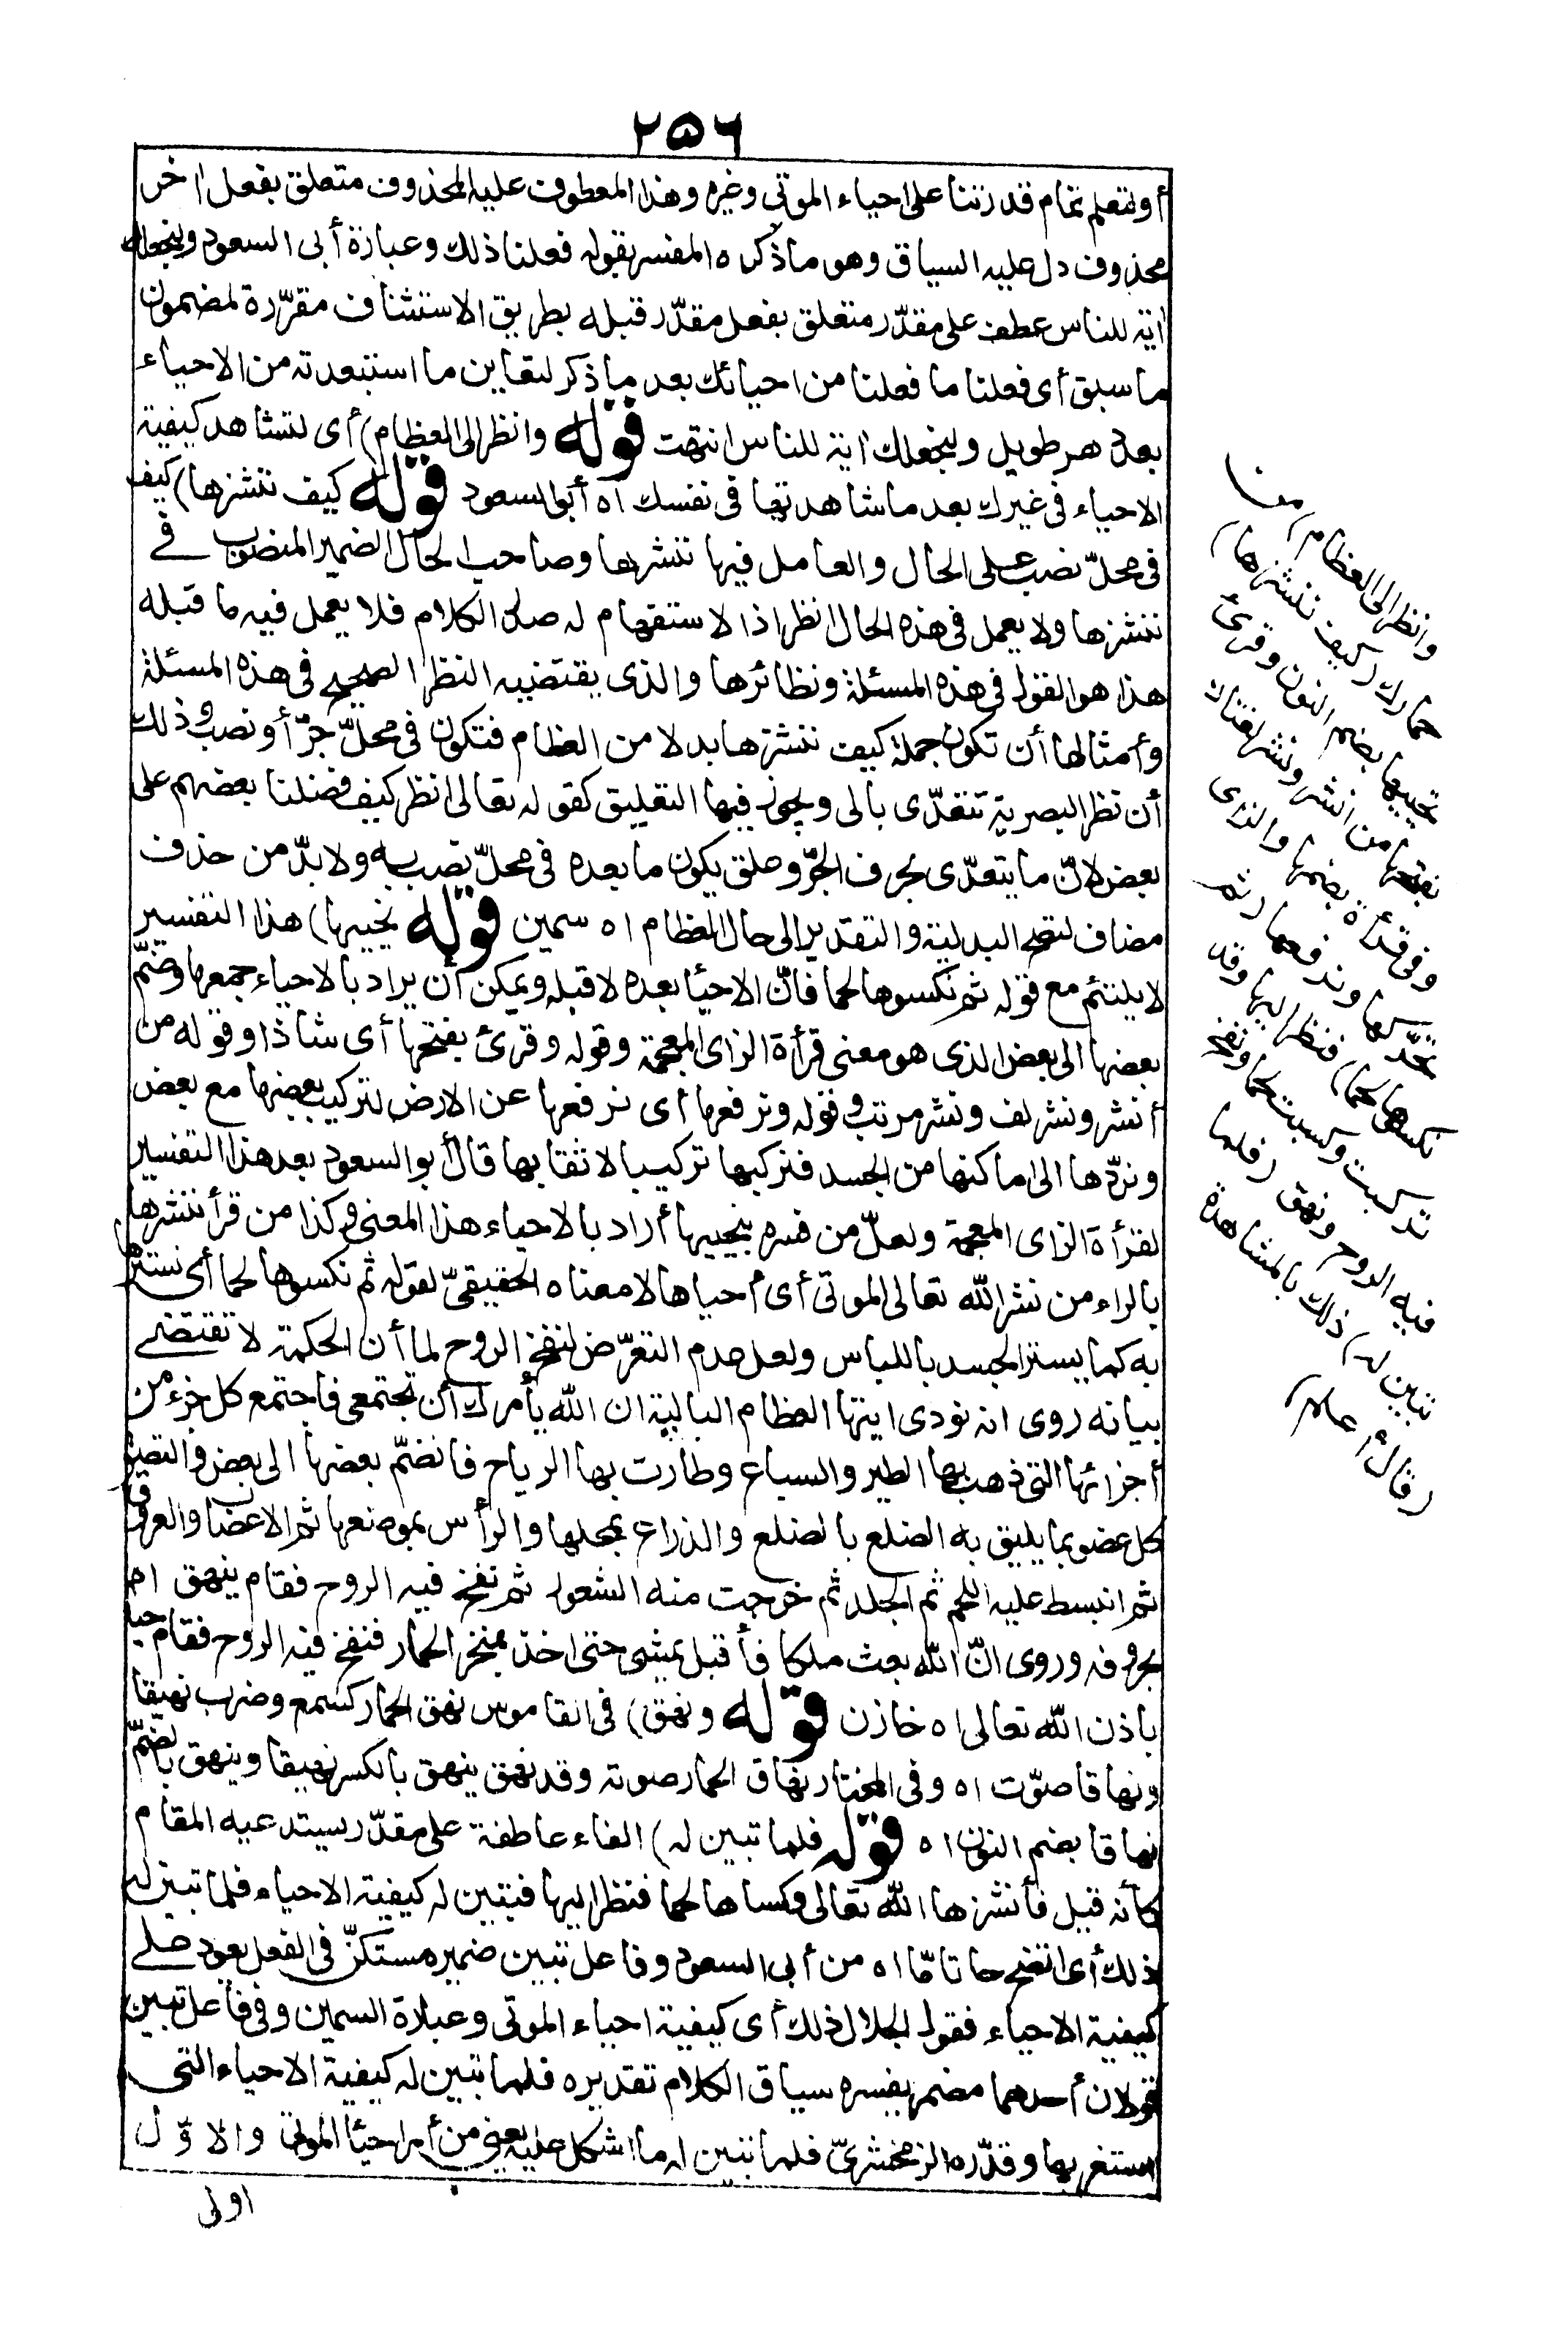 ٢٥٦
أو لتعلم تمام قدرتنا على احياء الموتى وغيره وهذا المعطوف عليه المحذوف متعلق بفعل اخر
محذوف دل عليه السياق وهو ما ذكره المفسر بقوله فعلنا ذلك وعبارة أبى السعود ولنجعلك
اية للناس عطف على مقدّر متعلق بفعل مقدّر قبله بطريق الاستئناف مقرّرة لمضمون
ما سبق أى فعلنا ما فعلنا من احيائك بعد ما ذكر لتعاين ما استبعدته من الاحياء
بعد دهر طويل ولنجعلك اية للناس انتهت قوله وانظر الى العظام) أى لتشاهد كيفية
الاحياء فى غيرك بعد ما شاهدتها فى نفسك اه أبو السعود قوله كيف ننشزها) كيف
فى محلّ نصب على الحال والعامل فيها ننشزها وصاحب الحال الضمير المنصوب فى
ننشزها ولا يعمل فى هذه الحال انظر اذا لاستفهام له صدر الكلام فلا يعمل فيه ما قبله
هذا هو القول فى هذه المسئلة ونظائرها والذى يقتضيه النظر الصحيح فى هذه المسئلة
وأمثالها أن تكون جملة كيف ننشزها بدلا من العظام فتكون فى محلّ جرّ أو نصب وذلك
أن نظر البصرية تتعدّى بالى ويجوز فيها التعليق كقوله تعالى انظر كيف فضلنا بعضهم على
بعض لانّ ما يتعدّى بحرف الجرّ وعلق يكون ما بعده فى محلّ نصب به ولا بدّ من حذف
مضاف لتصح البدلية والتقدير الى حال العظام اه سمين قوله نحييها) هذا التفسير
لا يلتئم مع قوله ثم نكسوها لحما فانّ الاحيأ بعده لا قبله ويمكن أن يراد بالاحياء جمعها وضمّ
بعضها الى بعض الذى هو معنى قرأة الزاى المعجمة وقوله وقرئ بفتحها أى شاذا وقوله من
أنشر ونشر لف ونشر مرتب وقوله ونرفعها أى نرفعها عن الارض لتركيب بعضها مع بعض
ونردّها الى اماكنها من الجسد فنركبها تركيبا لائقا بها قال أبو السعود بعد هذا التفسير
لقرأة الزاى المعجمة ولعلّ من فسره بنحييها أراد بالاحياء هذا المعنى وكذا من قرأ ننشرها
بالراء من نشر الله تعالى الموتى أى أحياها لا معناه الحقيقىّ لقوله ثم نكسوها لحما أى نسترها
به كما يستر الجسد باللباس ولعل عدم التعرّض لنفخ الروح لما أن الحكمة لا تقتضى
بيانه روى انه نودى ايتها العظام البالية ان الله يأمرك أن تجتمعى فاجتمع كل جزء من
أجزائها التى ذهب بها الطير والسباع وطارت بها الرياح فانضمّ بعضها الى بعض والتصق
كل عضو بما يليق به الضلع بالضلع والذراع بمحلها والرأس بموضعها ثم الاعضاب والعروق
ثم انبسط عليه اللحم ثم الجلد ثم خرجت منه الشعور ثم نفخ فيه الروح فقام ينهق اه
بحروفه وروى انّ الله بعث ملكا فأقبل يمشى حتى اخذ بمنخر الحمار فنفخ فيه الروح فقام حيا
باذن الله تعالى اه خازن قوله ونهق) فى القاموس نهق الحمار كسمع وضرب نهيقا
ونهاقا صوّت اه وفى المختار نهاق الحمار صوته وقد نهق ينهق بالكسر نهيقا وينهق بالضمّ
نهاقا بضم النون اه قوله فلما تبين له) الفاء عاطفة على مقدّر يستدعيه المقام
كأنه قيل فأنشزها الله تعالى وكساها لحما فنظر اليها فتبين له كيفية الاحياء فلما تبين له
ذلك أى اتضح تاما اه من أبى السعود وفاعل تبين ضميره مستكنّ فى الفعل يعود على
كيفية الاحياء فقول الجلال ذلك أى كيفية احياء الموتى وعبارة السمين وفى فاعل تبين
قولان أحدهما مضمر يفسره سياق الكلام تقديره فلما تبين له كيفية الاحياء التى
استغربها وقدّره الزمخشرىّ فلما تبين له ما اشكل عليه يعنى من أمر احيأ الموتى والاوّل
اولى
وانظر الى العظام) من
حمارك (كيف ننشزها)
نحييها بضم النون وقرئ
بفتحها من انشر ونشر لغتان
وفى قرأة بضمها والزاى
نحركها ونرفعها (ثم
نكسوها لحما) فنظر اليها وقد
تركبت وكسيت لحما ونفخ
فيه الروح ونهق (فلما
تبين له) ذلك بالمشاهدة
(قال أعلم)